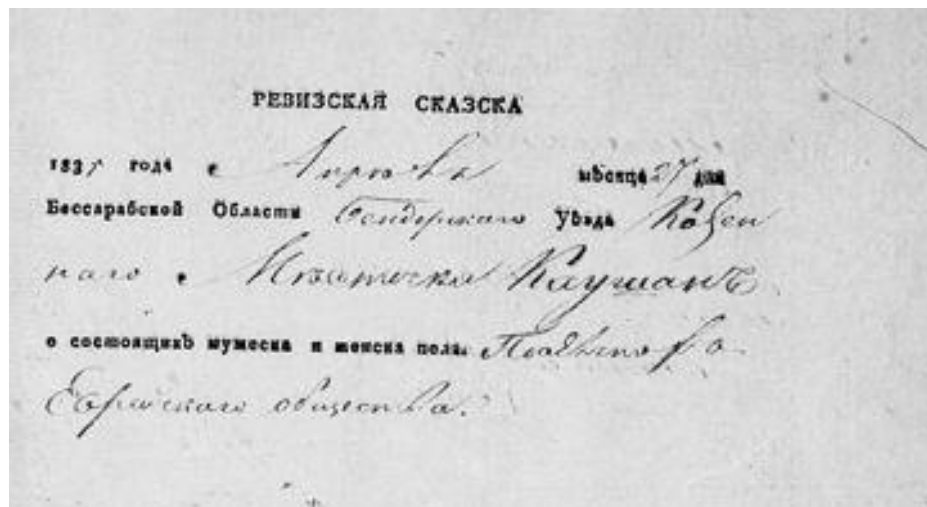 РЕВИЗСКАЯ СКАЗСКА
1835 года Апреля мѣсяца 27 дня
Бессарабской Области Бендерскаго Уѣзда Казен
наго Мѣстечка Каушанъ
о состоящихъ мужеска и женска пола
Еврейскаго общества.